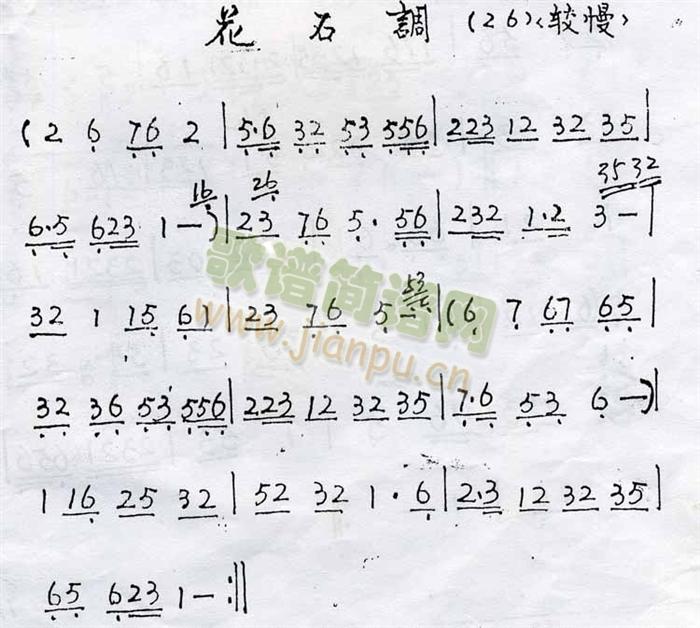 花石調 (26)<较慢>
(2 6 76 2 | 5·6 32 53 556 | 223 12 32 35 |
16 26 3532
6·5 623 1 — ) | 23 76 5 · 56 | 232 1·2 3 — |
53
32 1 15 61 | 23 76 5 — | (6 7 67 65 |
32 36 53 556 | 223 12 32 35 | 7·6 53 6 — ) ‖
1 16 25 32 | 52 32 1 · 6 | 2·3 12 32 35 |
65 623 1 — :‖
歌谱简谱网
www.jianpu.cn